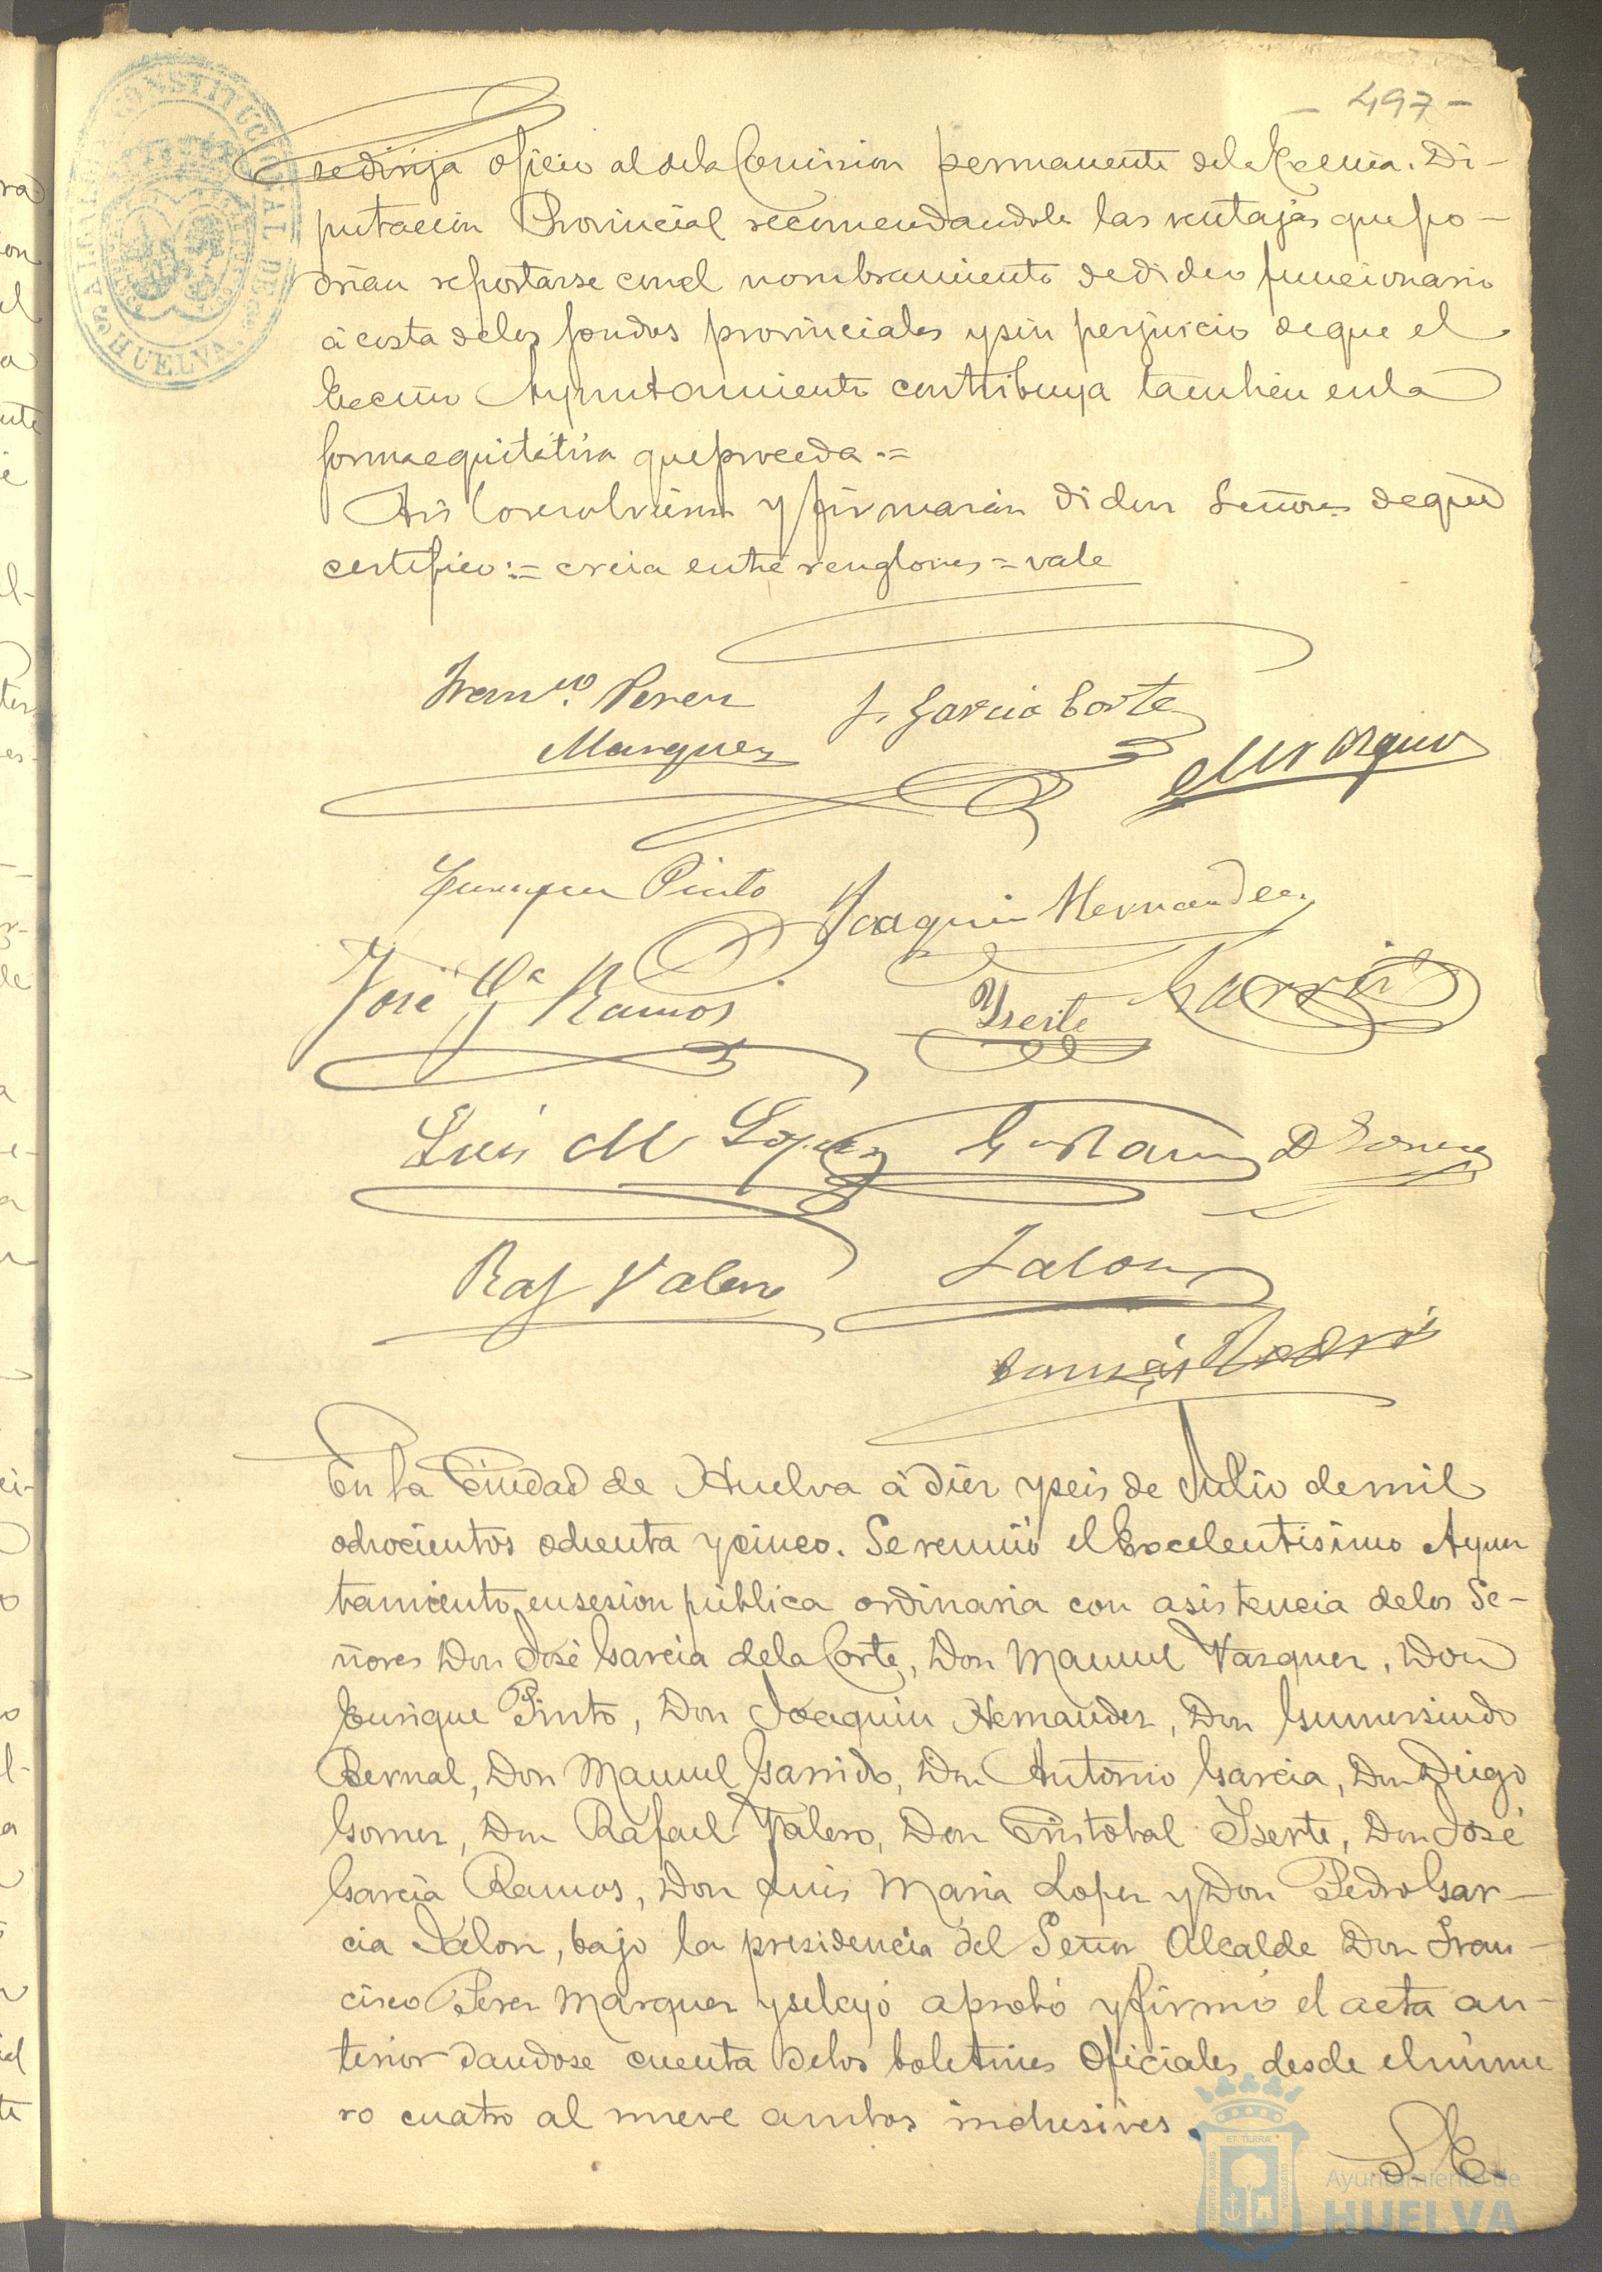 - 497 -
ALCALDIA CONSTITUCIONAL DE HUELVA
se dirija oficio al de la Comision permanente de la Excma. Di-
putacion Provincial recomendandole las ventajas que po-
drian reportarse con el nombramiento de dicho funcionario
á costa de los fondos provinciales y sin perjuicio de que el
Excmo Ayuntamiento contribuya tambien en la
forma equitativa que proceda .=
Asi lo resolvieron y firmarán dichos Señores de que
certifico := creia entre renglones = vale
Franco. Perez
Marquez
J. Garcia Corte
M Vazquez
Enrique Pinto
Joaquin Hernandez
José Ga Ramos
Yserte
Garrido
Luis M Lopez
D Gomez
Raf Valero
Jalon
Tomás
En la Ciudad de Huelva á diez y seis de Julio de mil
ochocientos ochenta y cinco. Se reunió el Excelentisimo Ayun
tamiento en sesion pública ordinaria con asistencia de los Se-
ñores Don José Garcia de la Corte, Don Manuel Vazquez, Don
Enrique Pinto, Don Joaquin Hernandez, Don Gumersindo
Bernal, Don Manuel Garrido, Don Antonio Garcia, Don Diego
Gomez, Don Rafael Valero, Don Cristobal Yserte, Don José
Garcia Ramos, Don Luis Maria Lopez y Don Pedro Gar-
cia Jalon, bajo la presidencia del Señor Alcalde Don Fran-
cisco Perez Marquez y se leyó aprobó y firmó el acta an-
terior dandose cuenta de los boletines Oficiales desde el núme
ro cuatro al nueve ambos inclusives.
S. E.
Ayuntamiento de
HUELVA